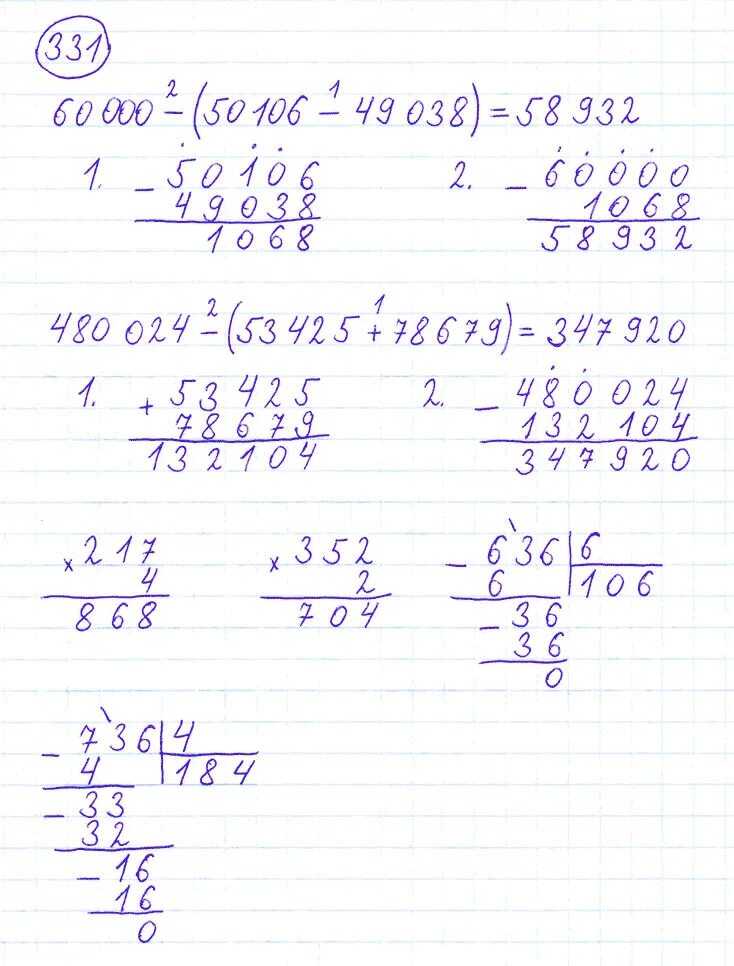 331
60 000 - (50 106 - 49 038) = 58 932
2 1
1. - 50106
49038
1068
2. - 60000
1068
58932
480 024 - (53 425 + 78 679) = 347 920
2 1
1. + 53 425
78 679
132 104
2. - 480 024
132 104
347 920
× 217
4
868
× 352
2
704
- 636 | 6
6 | 106
- 36
36
0
- 736 | 4
4 | 184
- 33
32
- 16
16
0